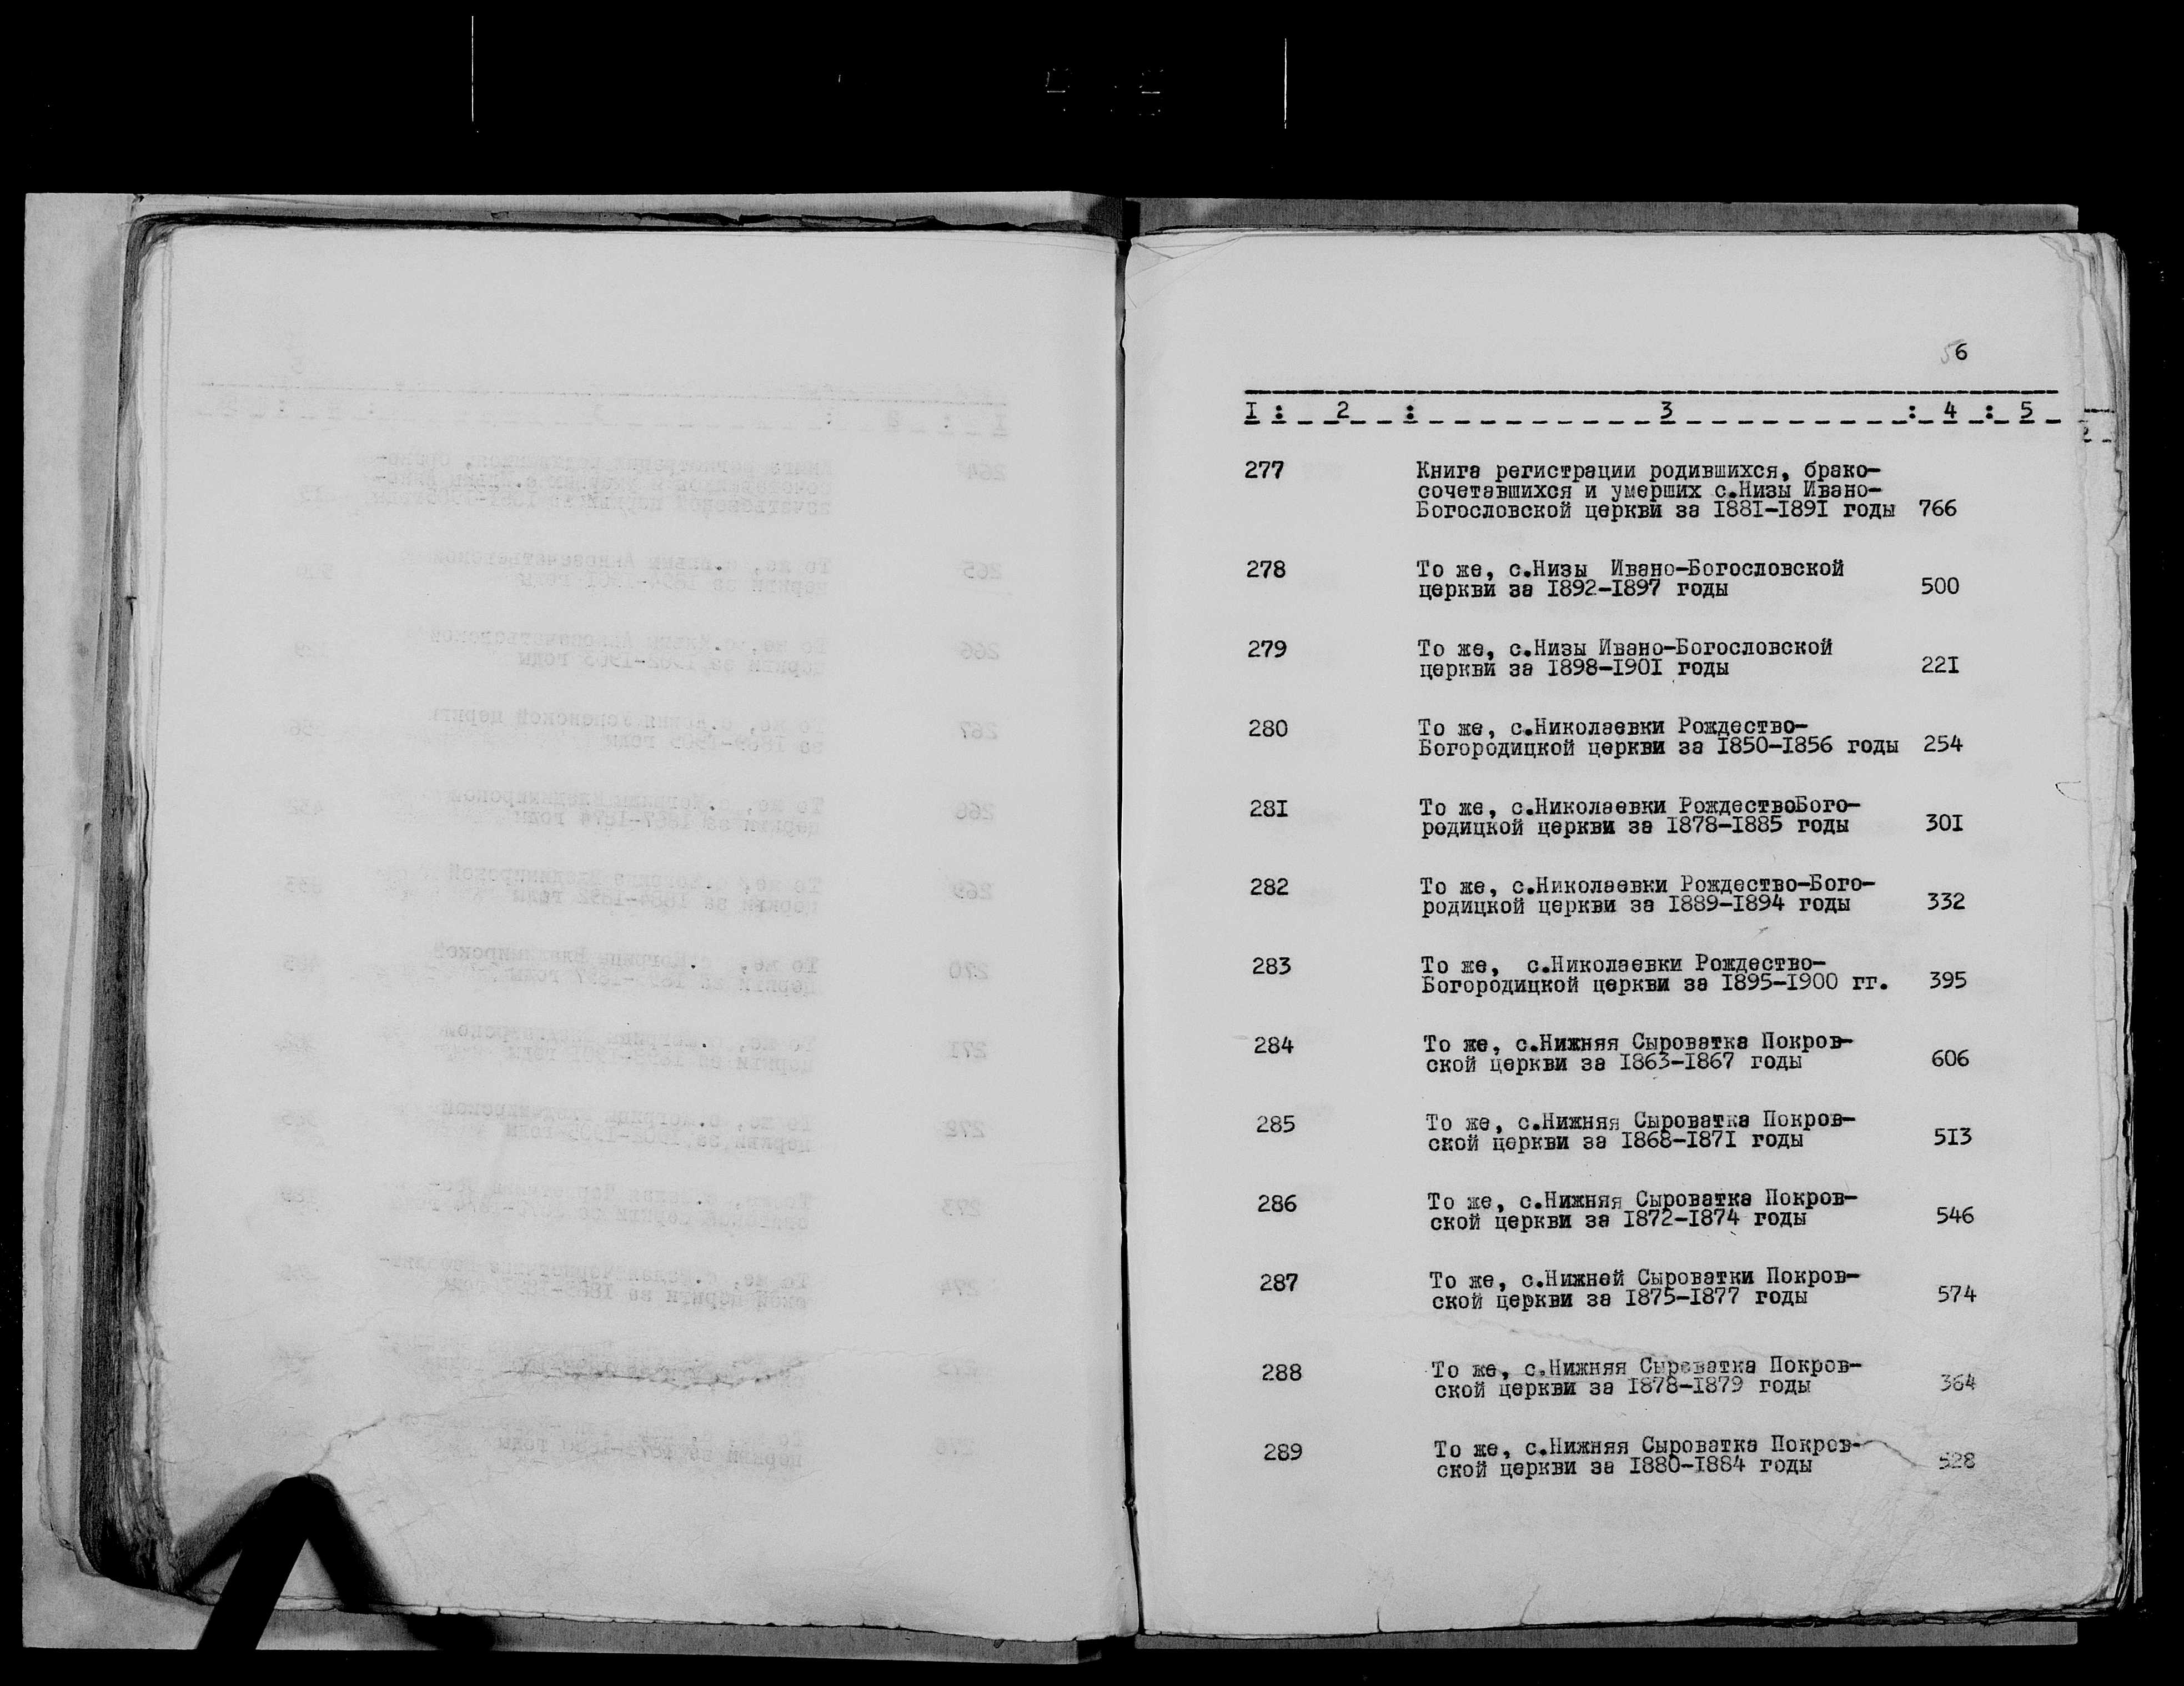 6
I : 2 : 3 : 4 : 5
277 Книга регистрации родившихся, брако-
сочетавшихся и умерших с.Низы Ивано-
Богословской церкви за I88I-I89I годы 766
278 То же, с.Низы Ивано-Богословской
церкви за I892-I897 годы 500
279 То же, с.Низы Ивано-Богословской
церкви за I898-I90I годы 22I
280 То же, с.Николаевки Рождество-
Богородицкой церкви за I850-I856 годы 254
28I То же, с.Николаевки РождествоБого-
родицкой церкви за I878-I885 годы 30I
282 То же, с.Николаевки Рождество-Бого-
родицкой церкви за I889-I894 годы 332
283 То же, с.Николаевки Рождество-
Богородицкой церкви за I895-I900 гг. 395
284 То же, с.Нижняя Сыроватка Покров-
ской церкви за I863-I867 годы 606
285 То же, с.Нижняя Сыроватка Покров-
ской церкви за I868-I87I годы 5I3
286 То же, с.Нижняя Сыроватка Покров-
ской церкви за I872-I874 годы 546
287 То же, с.Нижней Сыроватки Покров-
ской церкви за I875-I877 годы 574
288 То же, с.Нижняя Сыроватка Покров-
ской церкви за I878-I879 годы 364
289 То же, с.Нижняя Сыроватка Покров-
ской церкви за I880-I884 годы 528